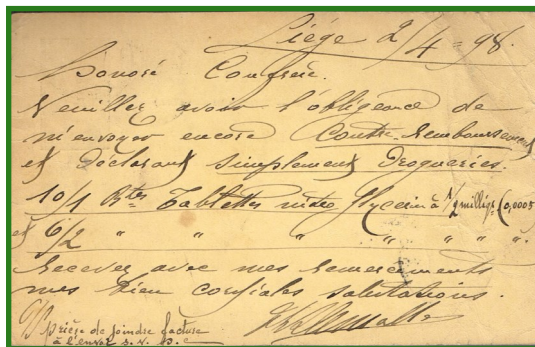 Liège 2/4-98.
Honoré Confrère.
Veuillez avoir l'obligeance de
m'envoyer encore Contre-Remboursement
et déclarant simplement Drogueries.
10/1 Btes Tablettes nitro Glycerin à 1/2 milligr (0,0005)
et 6/2 " " " " " " ".
Recevez avec mes remerciements
mes bien cordiales salutations.
Prière de joindre facture
à l'envoi s. v. p.